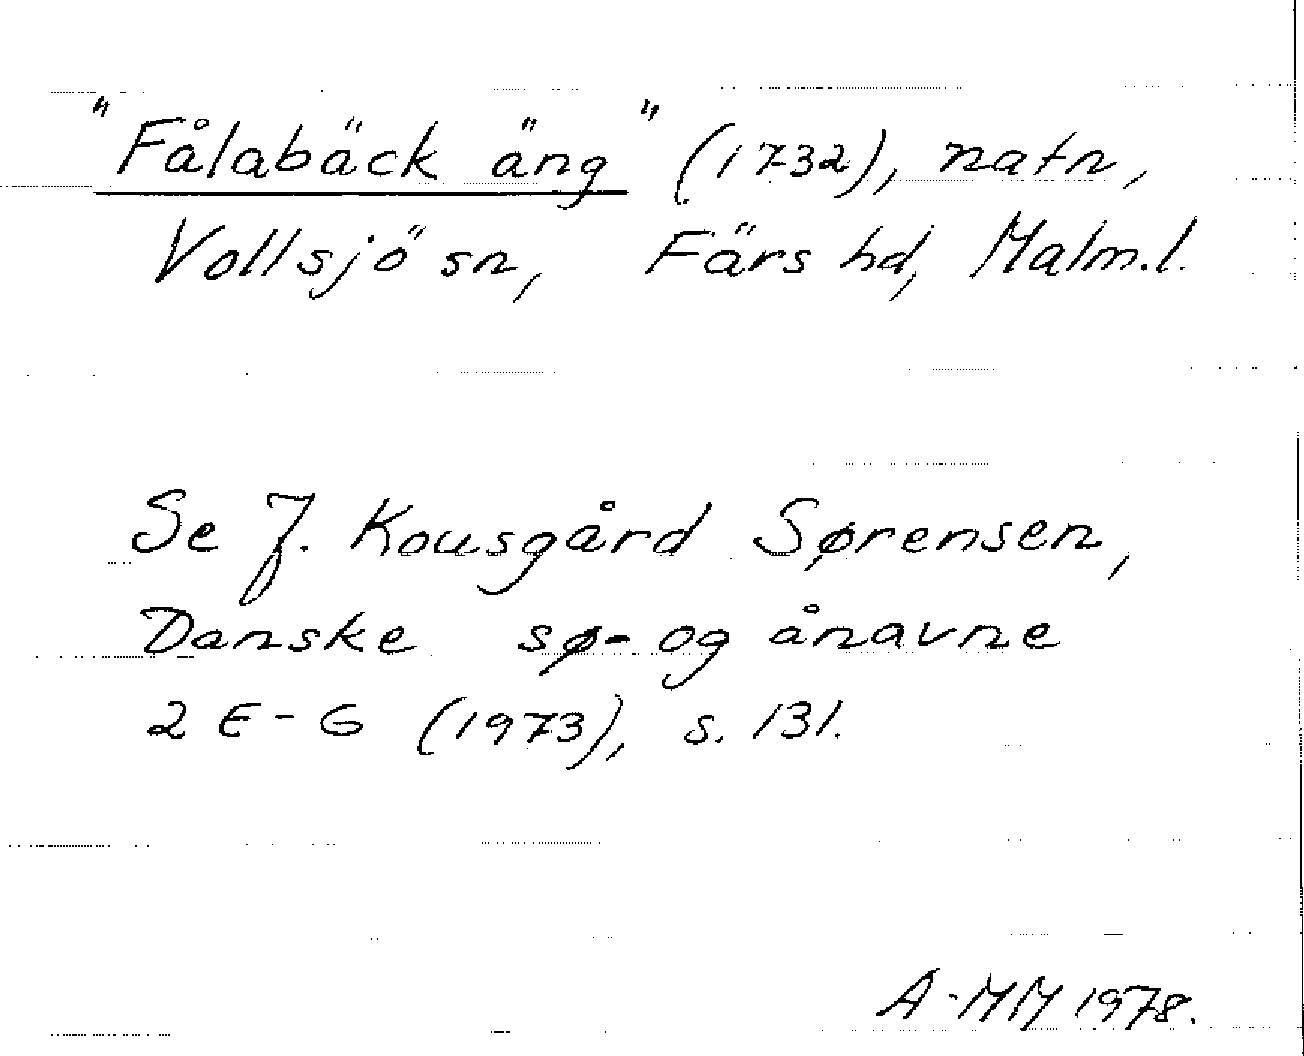 "Fålabäck äng" (1732), natn,
Vollsjö sn, Färs hd, Malm.l.
Se J. Kousgård Sørensen,
Danske sø- og ånavne
2 E-G (1973), s. 131.
A-MM 1978.